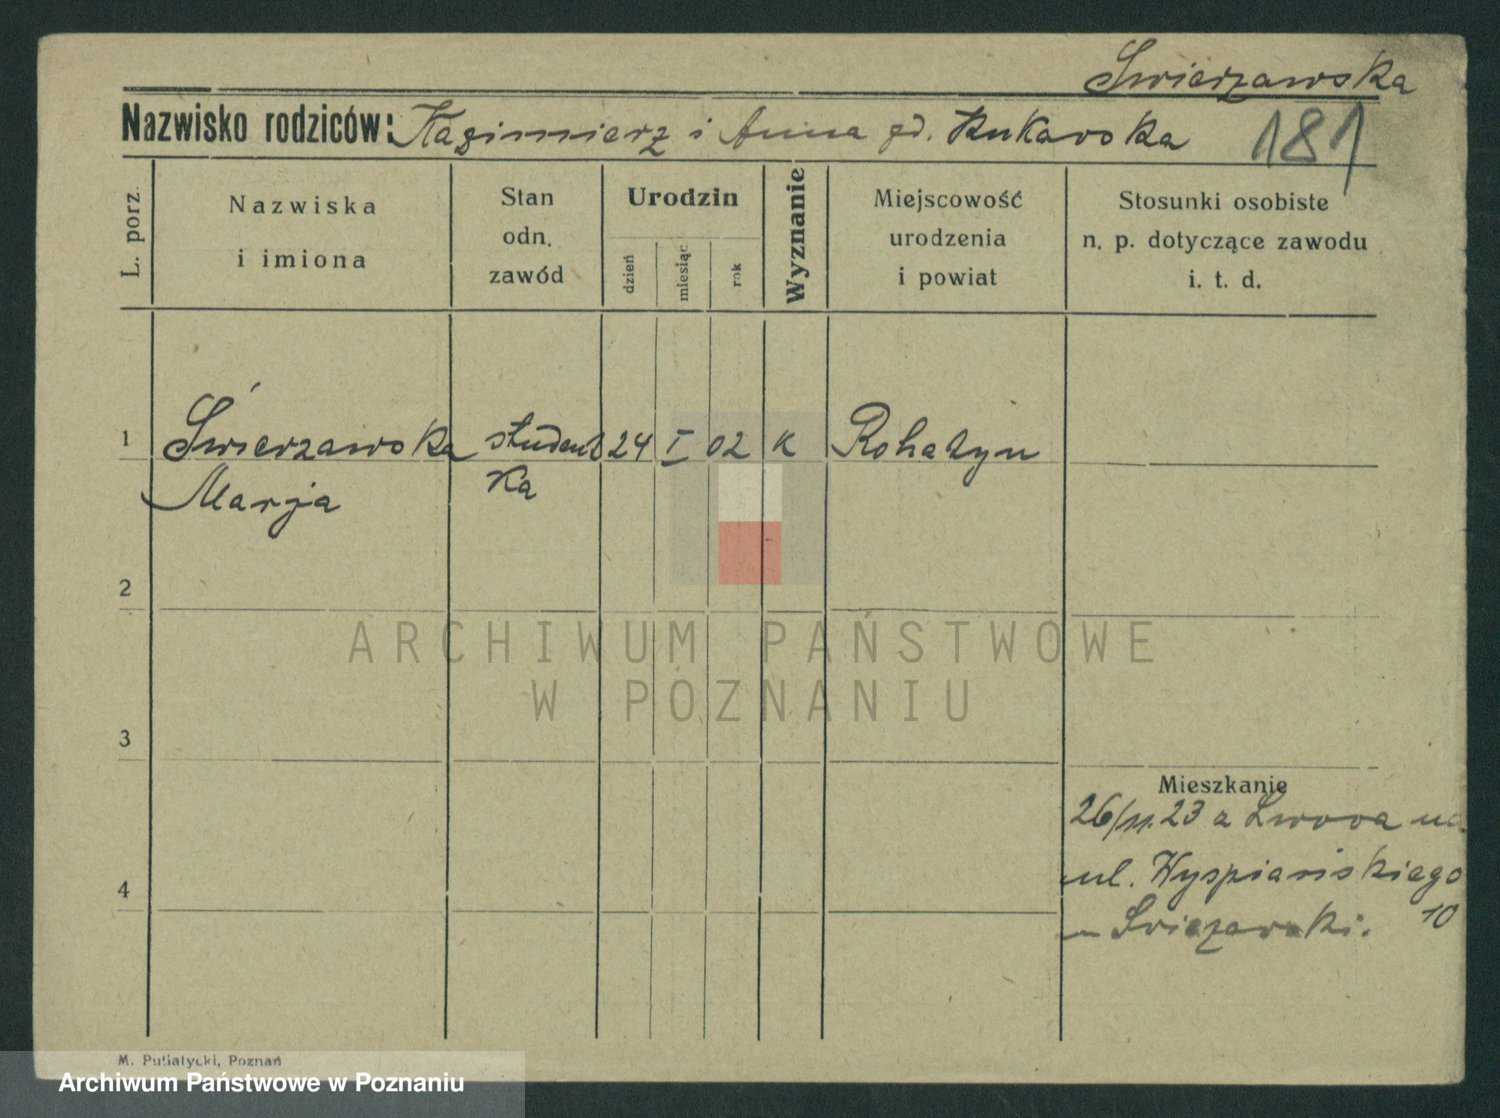 Swierzawska
Nazwisko rodziców: Kazimierz i Anna zd. Kukawska
181
L. porz.
Nazwiska
i imiona
Stan
odn.
zawód
Urodzin
dzień
miesiąc
rok
Wyznanie
Miejscowość
urodzenia
i powiat
Stosunki osobiste
n. p. dotyczące zawodu
i. t. d.
1 Świerzawska student 24 I 02 K Rohatyn
Marja ka
2
3
4
Mieszkanie
26/11.23 z Lwowa na
ul. Wyspiańskiego
10
M. Putiatycki, Poznań
ARCHIWUM PAŃSTWOWE
W POZNANIU
Archiwum Państwowe w Poznaniu